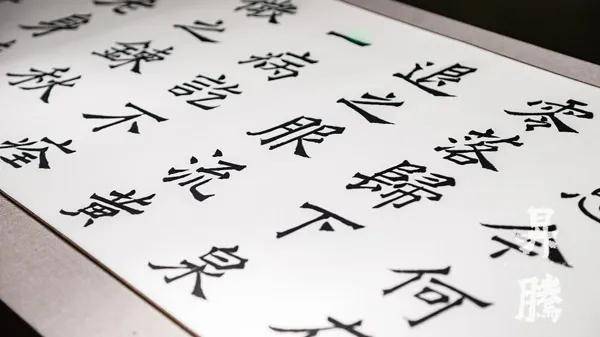 思今何在
零落歸下泉
退之服流黃
一病訖不痊
微之鍊秋
身
昇騰